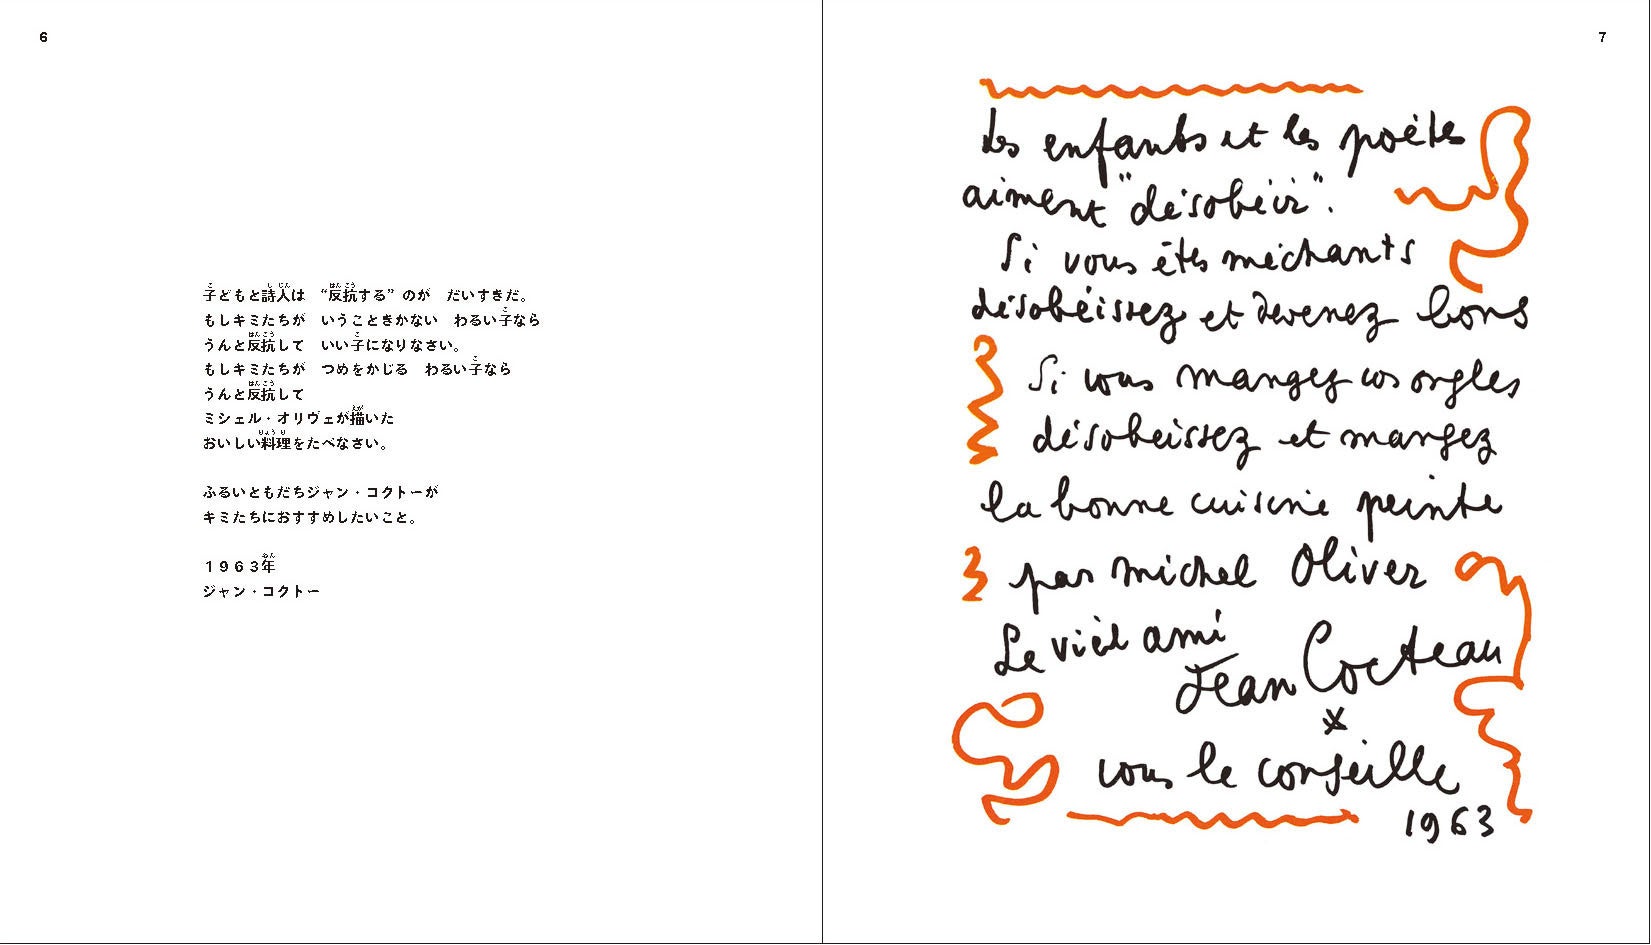 6
子どもと詩人は　“反抗する”のが　だいすきだ。
もしキミたちが　いうこときかない　わるい子なら
うんと反抗して　いい子になりなさい。
もしキミたちが　つめをかじる　わるい子なら
うんと反抗して
ミシェル・オリヴェが描いた
おいしい料理をたべなさい。
ふるいともだちジャン・コクトーが
キミたちにおすすめしたいこと。
1963年
ジャン・コクトー
7
Les enfants et les poètes
aiment "désobéir".
Si vous êtes méchants
désobéissez et devenez bons
Si vous mangez vos ongles
désobeissez et mangez
la bonne cuisine peinte
par michel Oliver
Le vieil ami
Jean Cocteau
vous le conseille
1963